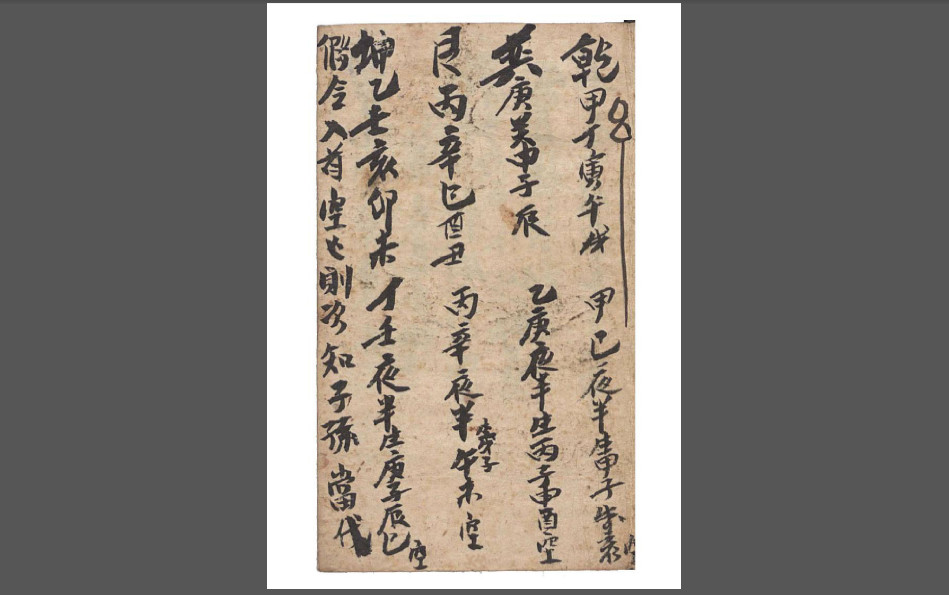 乾甲丁寅午戌 甲己夜半生甲子戌亥空
巽庚癸申子辰 乙庚夜半生丙子申酉空
艮丙辛巳酉丑 丙辛夜半生戊子午未空
坤乙壬亥卯未 丁壬夜半生庚子辰巳空
假令入首空亡則次知子孫當代